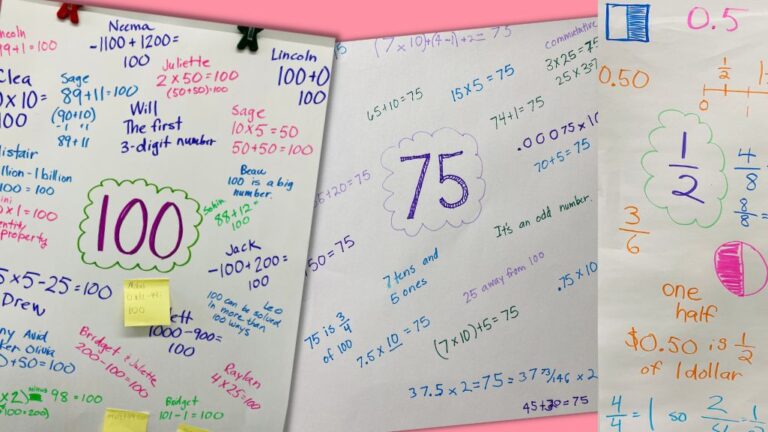 Lincoln
99+1=100
Neema
-1100+1200=
100
Juliette
2×50=100
(50+50)=100
Lincoln
100+0
100
Clea
0×10=
100
Sage
89+11=100
(90+10)
-1 11
89+11
Will
The first
3-digit number
Sage
10×5=50
50+50=100
llion-1 billion
+100=100
×1=100
property
100
Beau
100 is a big
number.
88+12=
100
Jack
-100+200=
100
5×5-25=100
Drew
Leo
100 can be solved
in more than
100 ways
100
1000-900=
100
Olivia
+50=100
Bridget & Juliette
200-100=100
Raylan
4×25=100
×2) minus 98=100
Bodget
101-1=100
(7×10)+(4-1)+2=75
commutative
3×25=75
25×3=7
65+10=75
15×5=75
74+1=75
.00075×10
70+5=75
75
55+20=75
It's an odd number.
50=75
7 tens and
5 ones
25 away from 100
.75×10
75 is 3/4
of 100
7.5×10=75
(7×10)+5=75
37.5×2=75=37 73/146×2
45+30=75
0.5
0.50
1/2
0
1/2
4/8
8/8
3/6
one
half
$0.50 is 1/2
of 1 dollar
4/4=1 so 2